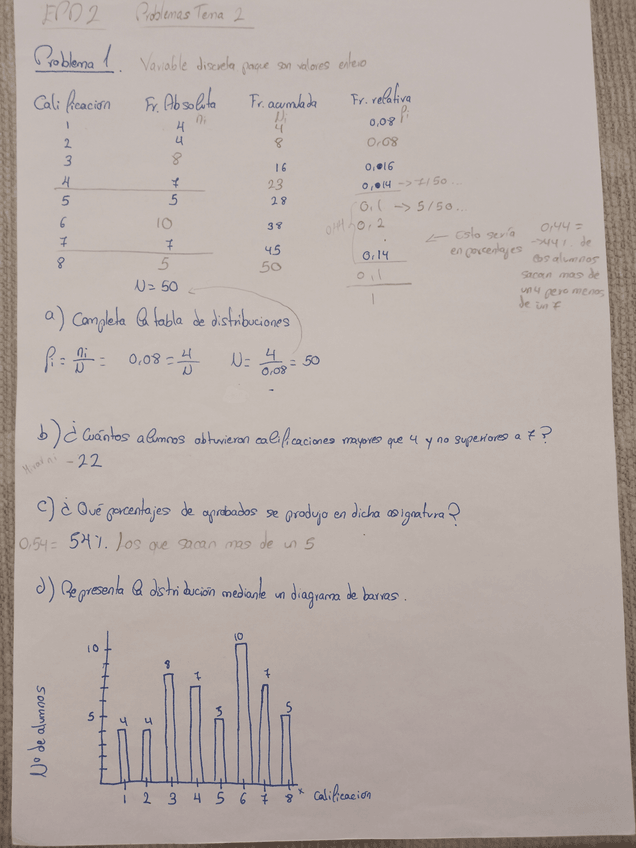 EPD2 Problemas Tema 2
Problema 1. Variable discreta porque son valores enteros
Calificación Fr. Absoluta Fr. acumulada Fr. relativa
ni Ni fi
1 4 4 0,08
2 4 8 0,08
3 8 16 0,016
4 7 23 0,014 -> 7/50...
5 5 28 0,1 -> 5/50...
6 10 38 0,44 0,2
7 7 45 0,14
8 5 50 0,1
N = 50 1
<- Esto sería
en porcentajes
0,44 =
->44% de
los alumnos
sacan mas de
un 4 pero menos
de un 7
a) Completa la tabla de distribuciones
fi = ni/N = 0,08 = 4/N N = 4/0,08 = 50
b) ¿Cuántos alumnos obtuvieron calificaciones mayores que 4 y no superiores a 7?
ni - 22
c) ¿Qué porcentajes de aprobados se produjo en dicha asignatura?
0,54 = 54%. Los que sacan mas de un 5
d) Representa la distribución mediante un diagrama de barras.
Nº de alumnos
10
5
4 4 8 7 5 10 7 5
1 2 3 4 5 6 7 8 x Calificacion